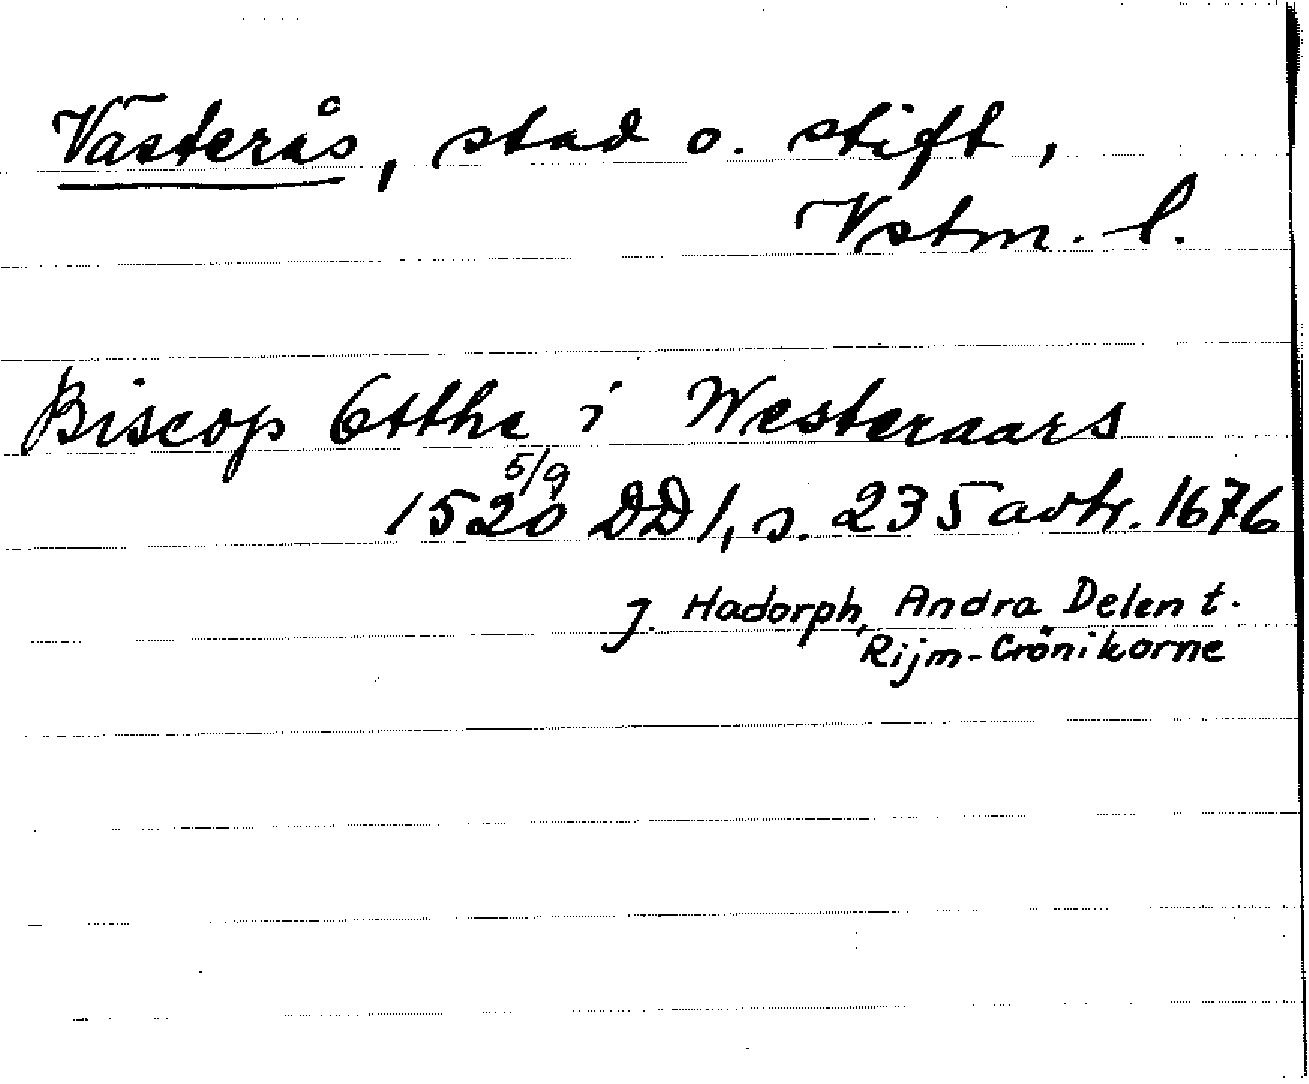 Västerås, stad o. stift,
Vstm. l.
Biscop Otthe i Westeraars
5/9
1520 DD 1, s. 235 avtr. 1676
J. Hadorph, Andra Delen t.
Rijm-Crönikorne